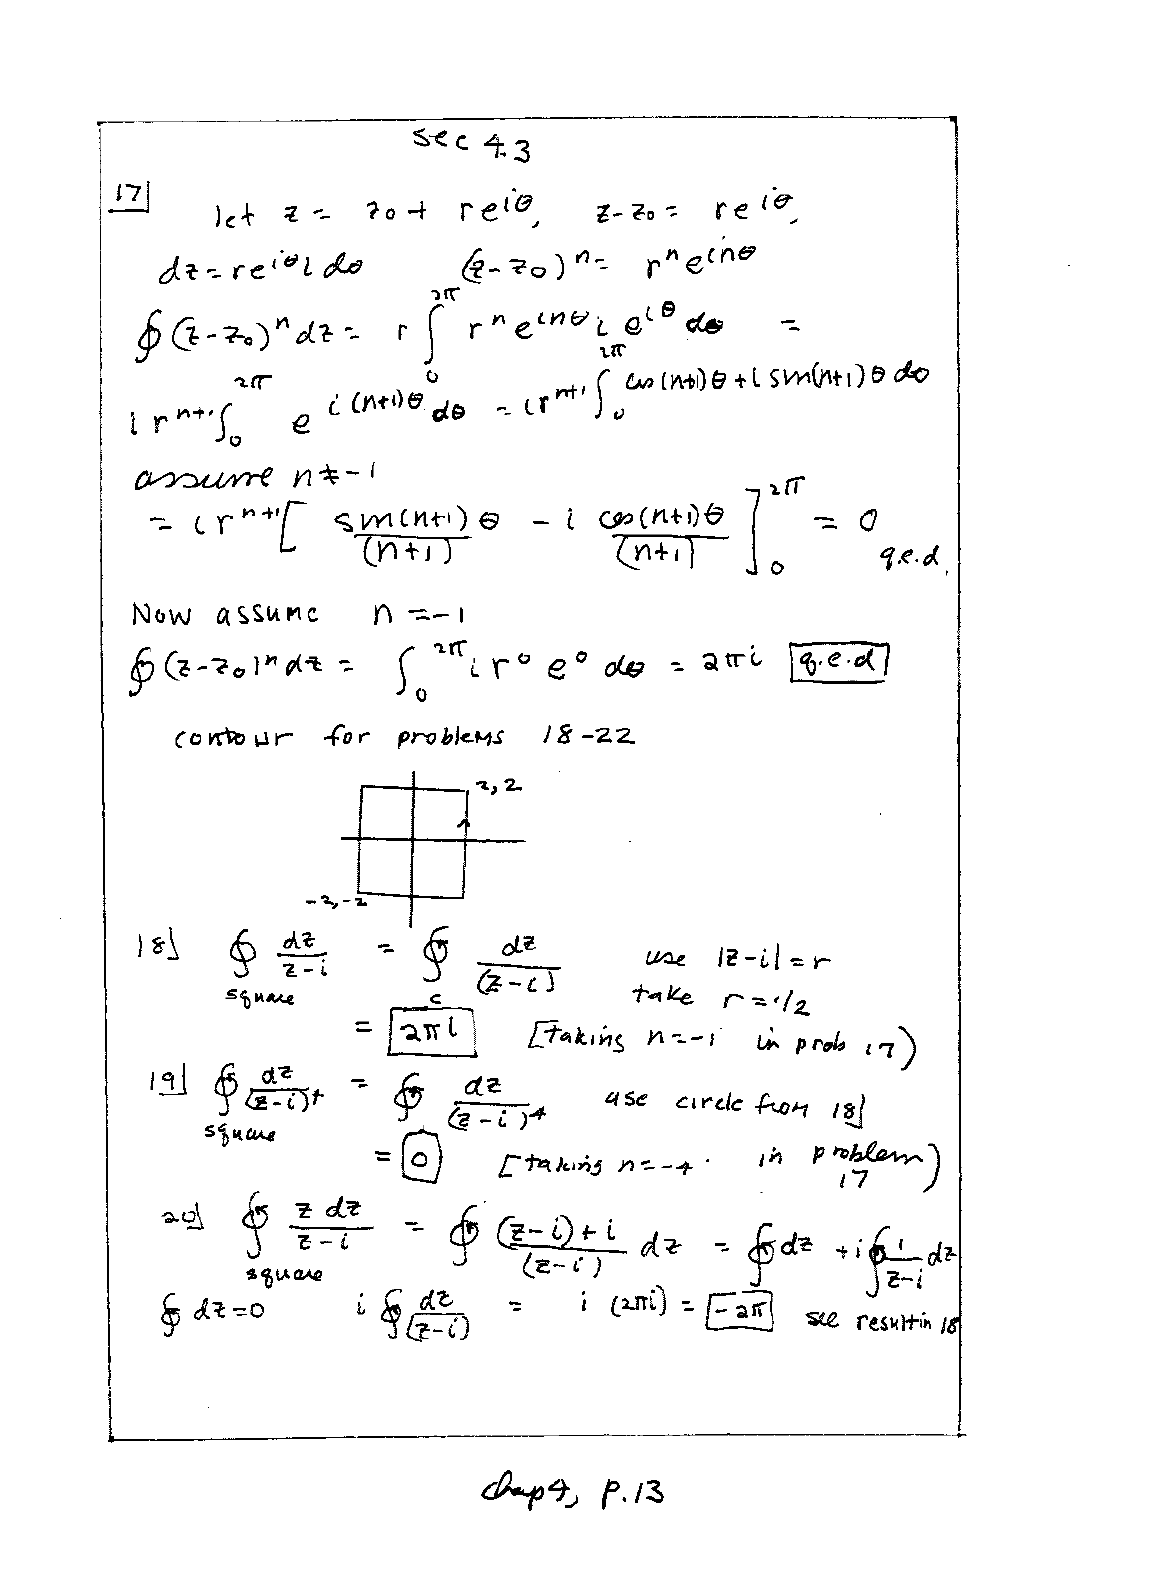 sec 4.3
17| let z = z₀ + re^{iθ}, z-z₀ = re^{iθ},
dz = re^{iθ} i dθ (z-z₀)ⁿ = rⁿe^{inθ}
∮(z-z₀)ⁿdz = r∫₀^{2π} rⁿe^{inθ} i e^{iθ} dθ =
i r^{n+1}∫₀^{2π} e^{i(n+1)θ} dθ = ir^{n+1}∫₀^{2π} cos(n+1)θ + i sin(n+1)θ dθ
assume n ≠ -1
= ir^{n+1}[ sin(n+1)θ/(n+1) - i cos(n+1)θ/(n+1) ]₀^{2π} = 0
q.e.d.
Now assume n = -1
∮(z-z₀)ⁿdz = ∫₀^{2π} i r⁰ e⁰ dθ = 2πi q.e.d
contour for problems 18-22
2, 2
-2, -2
18] ∮ dz/(z-i) = ∮ dz/(z-i) use |z-i| = r
square c take r = 1/2
= 2πi [taking n=-1 in prob 17)
19] ∮ dz/(z-i)⁴ = ∮ dz/(z-i)⁴ use circle from 18]
square
= 0 [taking n=-4 in problem 17)
20] ∮ z dz/(z-i) = ∮ (z-i)+i/(z-i) dz = ∮dz + i∮ 1/(z-i) dz
square
∮ dz=0 i∮ dz/(z-i) = i (2πi) = -2π see result in 18
chap 4, p.13